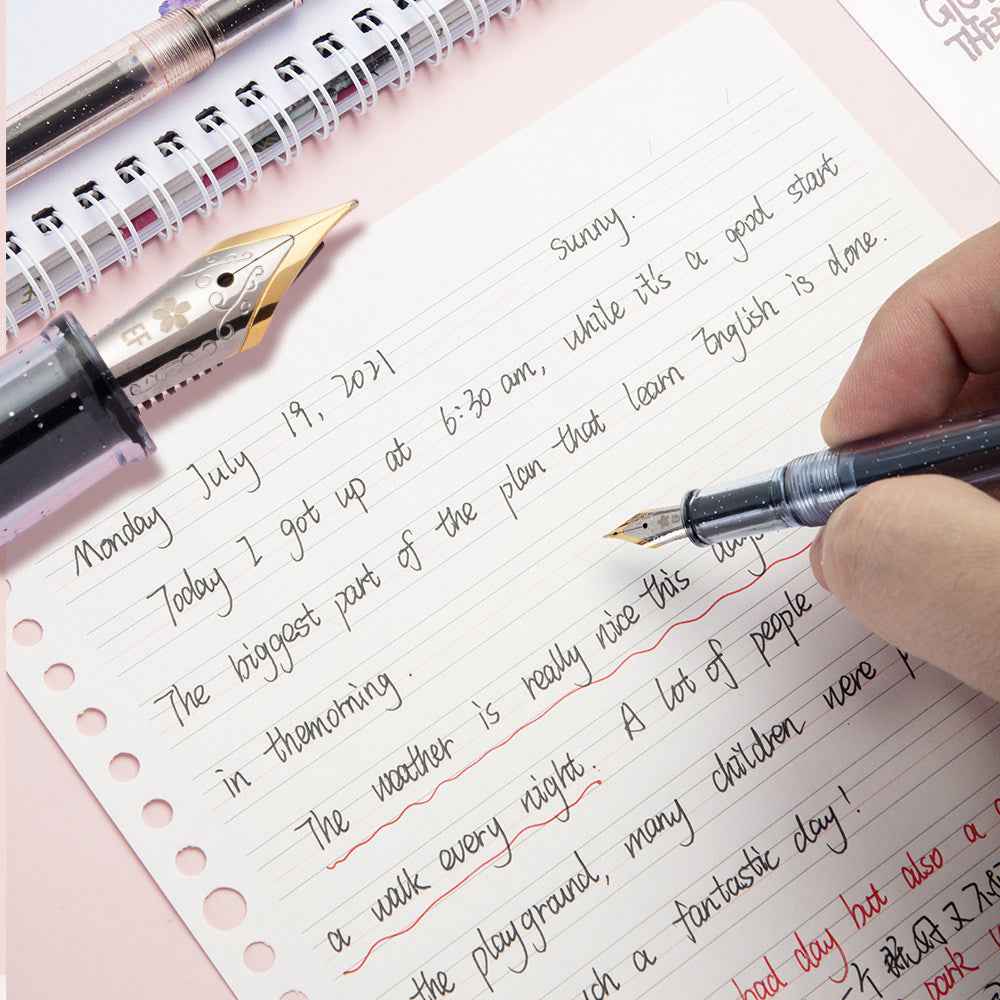 GIO
THE
EF
sunny.
Monday July 19, 2021
Today I got up at 6:30 am, while it's a good start
The biggest part of the plan that learn English is done.
in themorning.
The weather is really nice this
a walk every night. A lot of people
the playground, many children were
a fantastic day!
bad day but also a
park